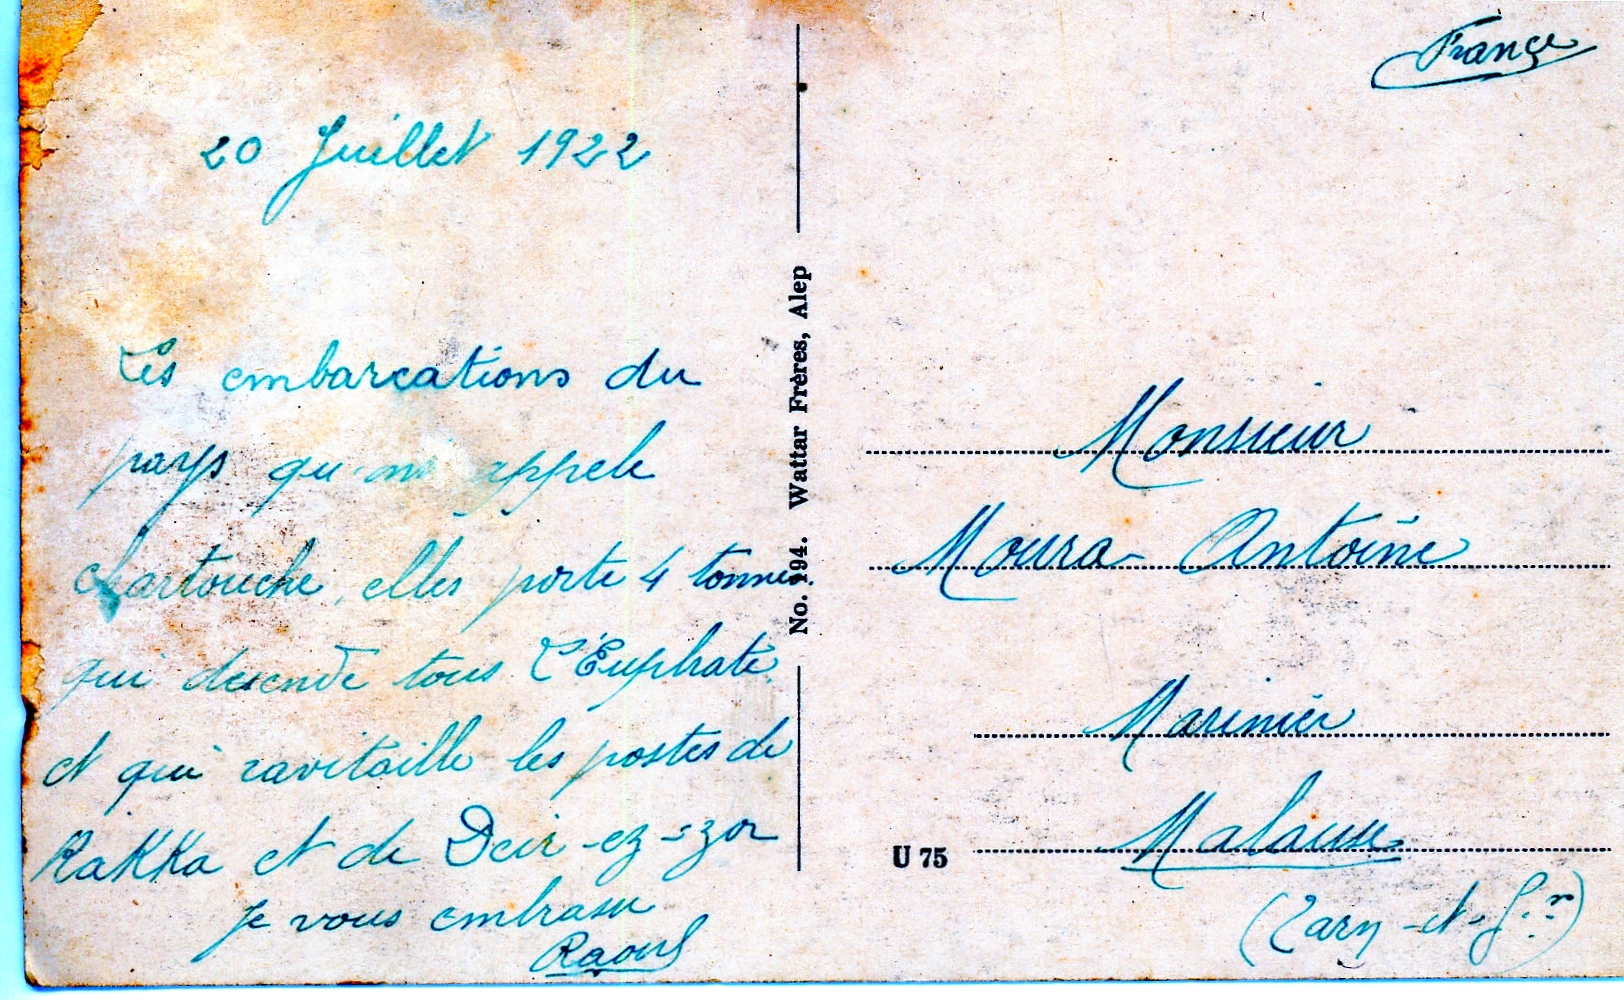 20 Juillet 1922
Les embarcations du
pays qu-on appele
chartouche, elles porte 4 tonnes.
qui descende tous l'Euphrate
et qui ravitaille les postes de
Rakka et de Deir-ez-zor
Je vous embrasse
Raoul
No. 194. Wattar Frères, Alep
France
Monsieur
Moura Antoine
Marinier
Malause
U 75
(Tarn-et-G.)